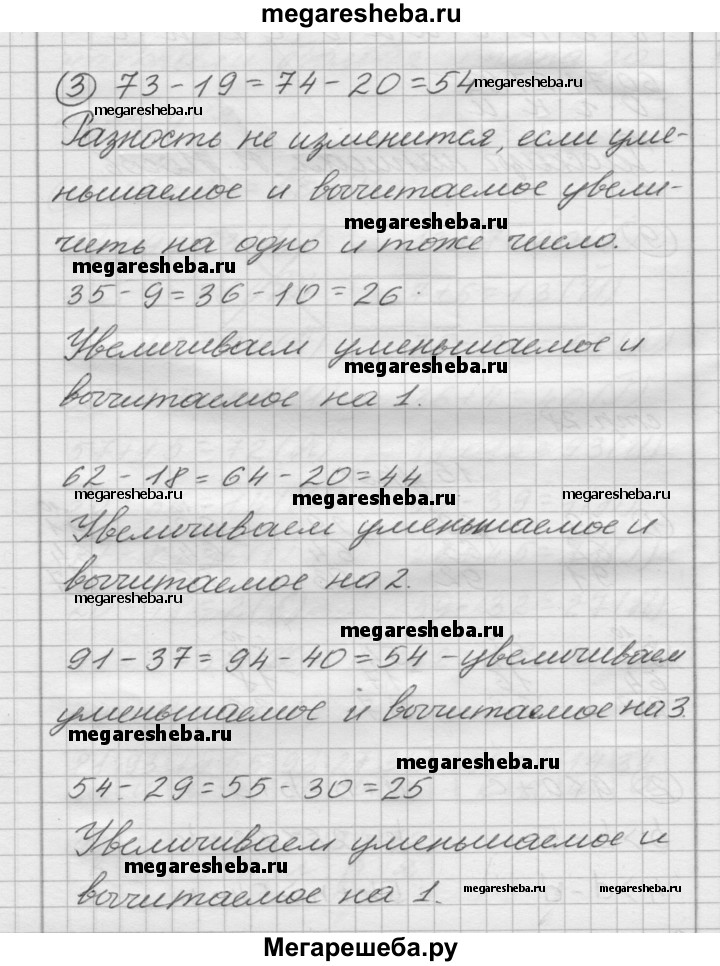 megaresheba.ru
3 73 - 19 = 74 - 20 = 54 megaresheba.ru
megaresheba.ru
Разность не изменится, если уме-
ньшаемое и вычитаемое увели-
megaresheba.ru
чить на одно и тоже число.
megaresheba.ru
35 - 9 = 36 - 10 = 26.
Увеличиваем уменьшаемое и
megaresheba.ru
вычитаемое на 1.
62 - 18 = 64 - 20 = 44
megaresheba.ru megaresheba.ru megaresheba.ru
Увеличиваем уменьшаемое и
вычитаемое на 2.
megaresheba.ru
megaresheba.ru
91 - 37 = 94 - 40 = 54 - увеличиваем
уменьшаемое и вычитаемое на 3.
megaresheba.ru
megaresheba.ru
54 - 29 = 55 - 30 = 25
Увеличиваем уменьшаемое и
megaresheba.ru
вычитаемое на 1. megaresheba.ru megaresheba.ru
Мегарешеба.ру